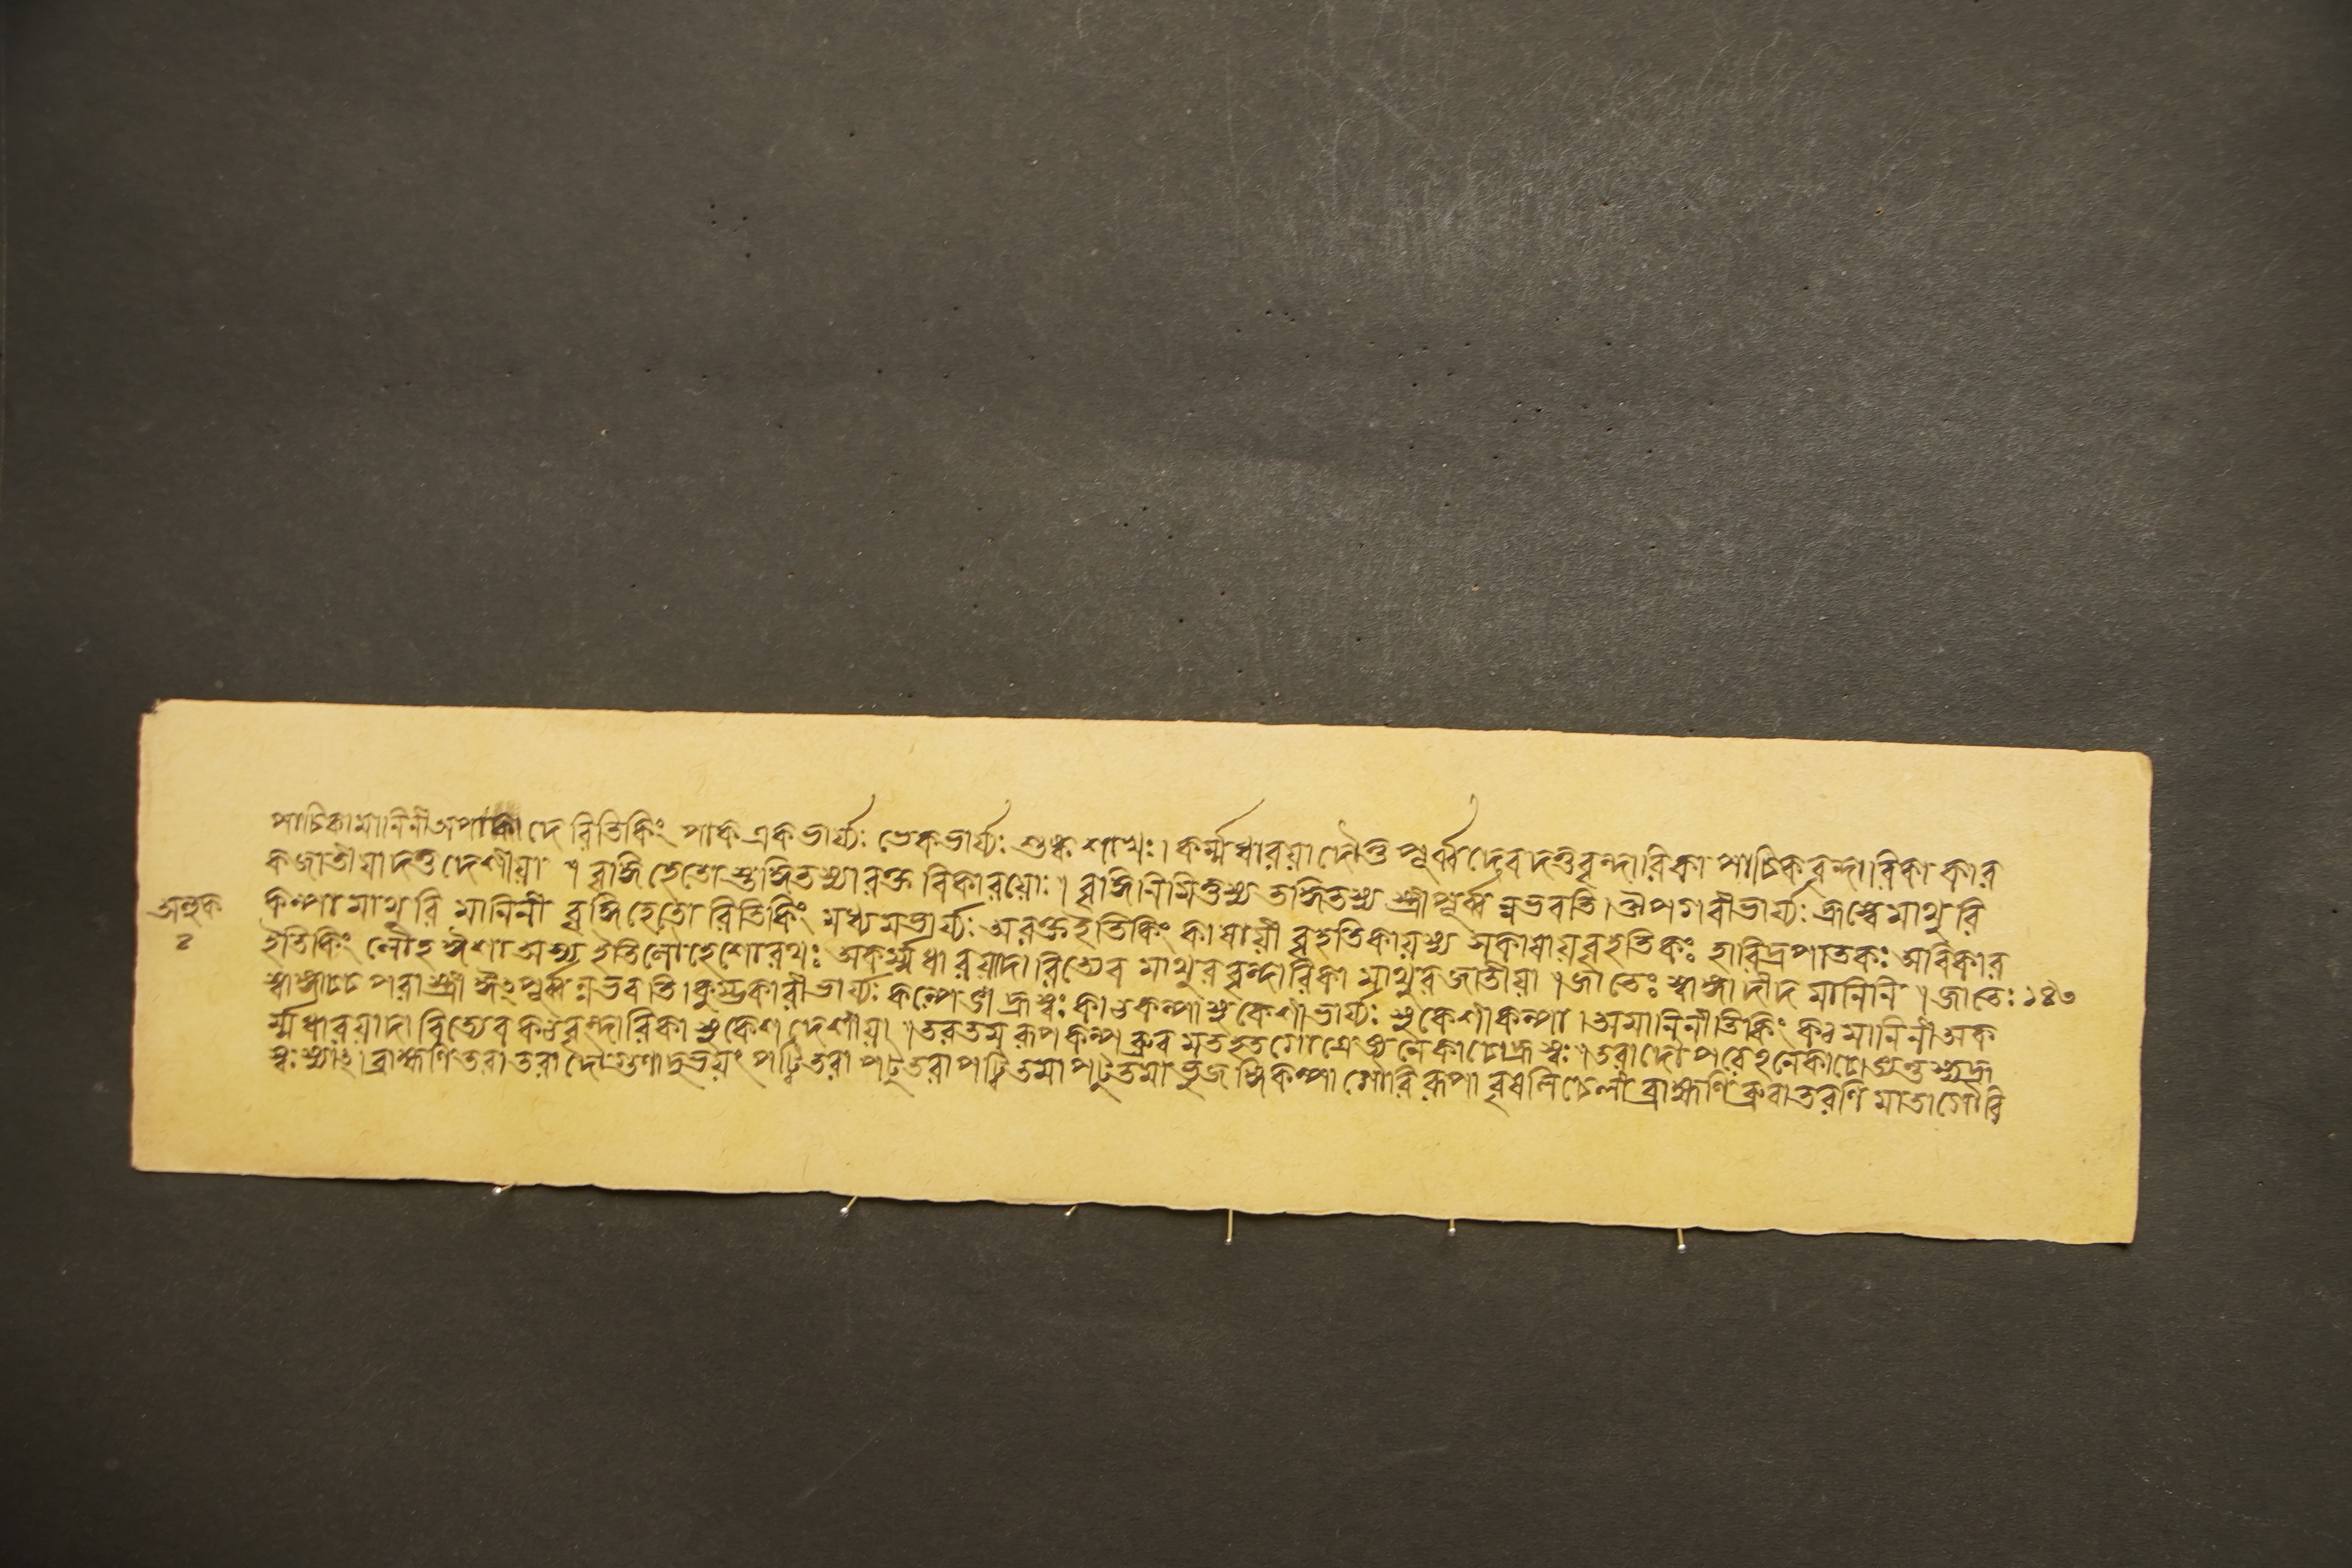 পাচিকামানিনী অপাকাদেরিতিকিং পাক একভার্য্যঃ ভেকভার্য্যঃ শুষ্ক শাখঃ। কর্ম্মধারয়াদৌতু পূর্ব্ব দেবদত্তবৃন্দারিকা পাচিকবৃন্দারিকা কার
কজাতীয়া দত্তদেশীয়া । বৃদ্ধি হেতোস্তদ্ধিতস্যারক্ত বিকারয়োঃ। বৃদ্ধিনিমিত্তস্য তদ্ধিতস্য স্ত্রী পূর্ব্ব ন্নভবতি। ঔপগবীভার্য্যঃ হ্রস্বে মাথুরি
কল্পা মাথুরি মানিনী বৃদ্ধিহেতো রিতিকিং মধ্যমভার্য্যঃ অরক্তইতিকিং কাষায়ী বৃহতিকায়স্য সকাষায়বৃহতিকঃ হারিদ্রপাতকঃ অবিকার
ইতিকিং লৌহ ঈশা অস্য ইতিলৌহেশোরথঃ অকর্ম্মধারয়াদা রিত্যেব মাথুরবৃন্দারিকা মাথুরজাতীয়া । জাতেঃ স্বাঙ্গাদীদ মানিনি । জাতেঃ
স্বাঙ্গাচ্চ পরা স্ত্রী ঈং পূর্ব্ব ন্নভবতি। কুম্ভকারীভার্য্যঃ কল্পেভা হ্রস্বঃ কাণ্ডকল্পা শুকেশীভার্য্যঃ শুকেশীকল্পা। অমানিনীতিকিং কঠমানিনী অক
র্ম্মধারয়াদা রিত্যেব কঠবৃন্দারিকা শুকেশ দেশীয়া । তরতম রূপ কল্প ব্রুব মতহতগোত্রে নেকাচোহ্রস্বঃ । তরাদৌ পরেহনেকাচো হ্রী
স্বঃ স্যাৎ। ব্রাহ্মণিতরা তরাদৌ গুণাদুভয়ং পট্বিতরা পটুতরা পট্বিতমা পটুতমা ভুজঙ্গিকল্পা গৌরিরূপা বৃষলিচেলী ব্রাহ্মণিব্রুবা তরণি মাতা গৌরি
২
১৪৩